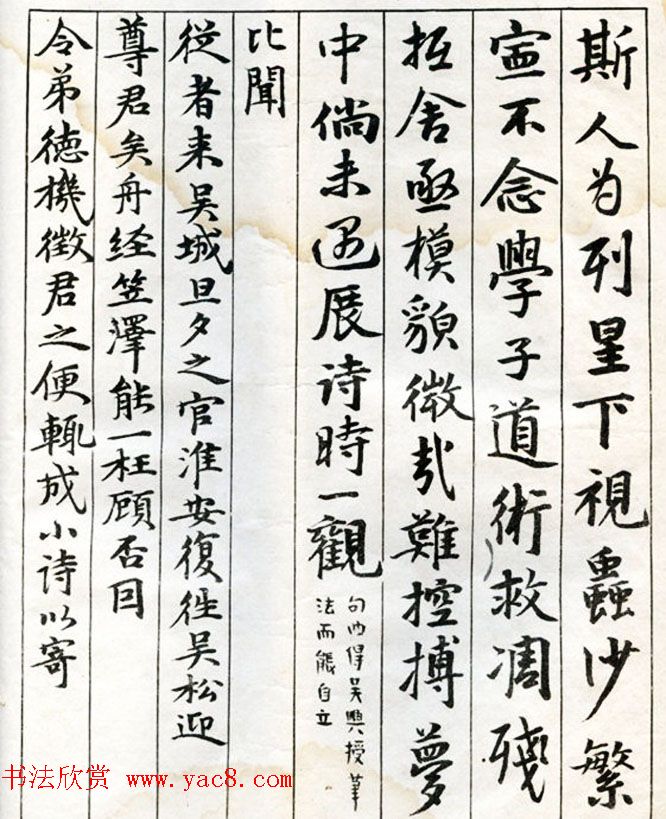 斯人为列星下視蟲沙繁
不念學子道術救凋殘
抵舍亟模貌微哉難控搏夢
中倘未遇展诗時一觀
句内得吴興授筆
法而能自立
比聞
從者来吴城旦夕之官淮安復往吴松迎
尊君矣舟经笠澤能一枉顾否因
令弟德機徵君之便輒成小诗以寄
书法欣赏 www.yac8.com